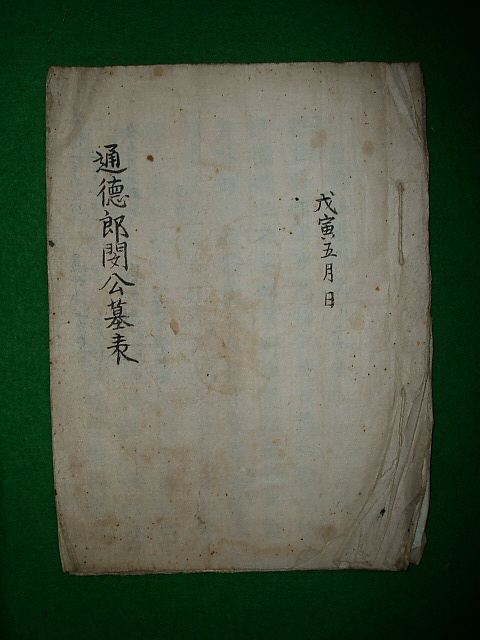 戊寅五月日
通德郎閔公墓表